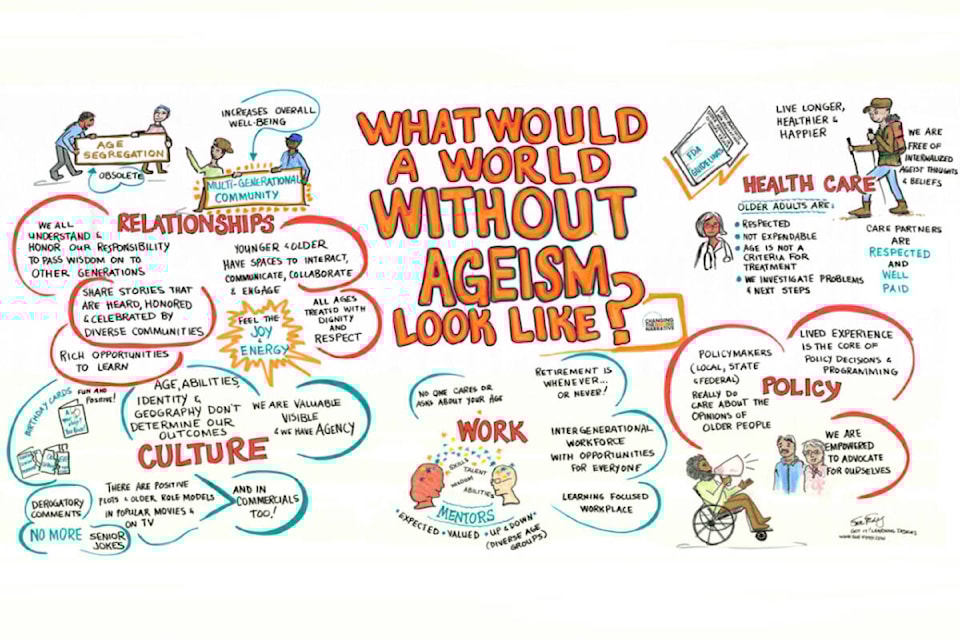 WHAT WOULD
A WORLD
WITHOUT
AGEISM
LOOK LIKE?
CHANGING
THE
NARRATIVE
AGE
SEGREGATION
OBSOLETE
INCREASES OVERALL
WELL-BEING
MULTI-GENERATIONAL
COMMUNITY
RELATIONSHIPS
WE ALL
UNDERSTAND &
HONOR OUR RESPONSIBILITY
TO PASS WISDOM ON TO
OTHER GENERATIONS
YOUNGER & OLDER
HAVE SPACES TO INTERACT,
COMMUNICATE, COLLABORATE
& ENGAGE
SHARE STORIES THAT
ARE HEARD, HONORED
& CELEBRATED BY
DIVERSE COMMUNITIES
FEEL THE
JOY
&
ENERGY
ALL AGES
TREATED WITH
DIGNITY
AND
RESPECT
RICH OPPORTUNITIES
TO LEARN
BIRTHDAY CARDS FUN AND
POSITIVE!
AGE, ABILITIES,
IDENTITY &
GEOGRAPHY DON'T
DETERMINE OUR
OUTCOMES
WE ARE VALUABLE
VISIBLE
& WE HAVE AGENCY
CULTURE
DEROGATORY
COMMENTS
NO MORE SENIOR
JOKES
THERE ARE POSITIVE
PLOTS & OLDER ROLE MODELS
IN POPULAR MOVIES &
ON TV
AND IN
COMMERCIALS
TOO!
NO ONE CARES OR
ASKS ABOUT YOUR AGE
RETIREMENT IS
WHENEVER...
OR NEVER!
WORK
INTERGENERATIONAL
WORKFORCE
WITH OPPORTUNITIES
FOR EVERYONE
SKILLS
TALENT
WISDOM
ABILITIES
MENTORS
• EXPECTED • VALUED • UP & DOWN •
(DIVERSE AGE
GROUPS)
LEARNING FOCUSED
WORKPLACE
FDA
GUIDELINES
LIVE LONGER,
HEALTHIER &
HAPPIER
WE ARE
FREE OF
INTERNALIZED
AGEIST THOUGHTS
& BELIEFS
HEALTH CARE
OLDER ADULTS ARE:
• RESPECTED
• NOT EXPENDABLE
• AGE IS NOT A
CRITERIA FOR
TREATMENT
• WE INVESTIGATE PROBLEMS
& NEXT STEPS
CARE PARTNERS
ARE
RESPECTED
AND
WELL
PAID
POLICYMAKERS
(LOCAL, STATE
& FEDERAL)
REALLY DO
CARE ABOUT THE
OPINIONS OF
OLDER PEOPLE
LIVED EXPERIENCE
IS THE CORE OF
POLICY DECISIONS &
PROGRAMMING
POLICY
WE ARE
EMPOWERED
TO ADVOCATE
FOR OURSELVES